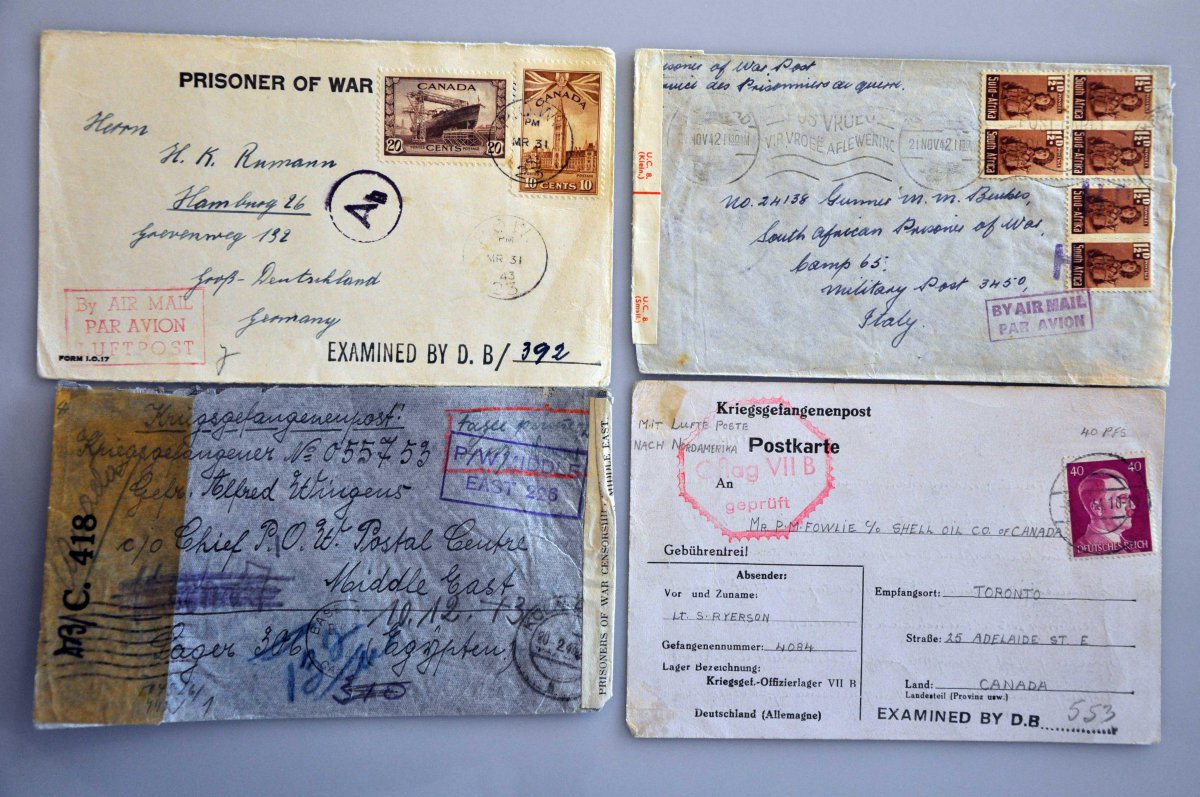 PRISONER OF WAR
CANADA
20 CENTS 20
CANADA
10 CENTS 10
PM
MR 31
Herrn
H. K. Rumann
Hamburg 26
Grevenweg 192
Groß-Deutschland
Germany
Ab
PM
MR 31
43
By AIR MAIL
PAR AVION
LUFTPOST
FORM I.O.17
EXAMINED BY D. B/ 392
Prisoner of War Post
des Prisonniers de guerre.
U.C. 8.
(Klein.)
U.C. 8
(Small.)
VIR VROEË AFLEWERING
21 NOV 42
South Africa
Suid-Afrika
South Africa
Suid-Afrika
Suid-Afrika
South Africa
No. 24138 Gunner M. M. Beukes,
South African Prisoner of War,
Camp 65.
Military Post 3450,
Italy.
BY AIR MAIL
PAR AVION
Kriegsgefangenenpost!
Kriegsgefangener No 055753
Gefr. Alfred Wingens
c/o Chief P.O.W. Postal Centre
Middle East
Lager 306 Egypten
P/W MIDDLE
EAST 226
10.12.
C. 418
PRISONERS OF WAR CENSORSHIP MIDDLE EAST
Kriegsgefangenenpost
MIT LUFTPOSTE
NACH NORDAMERIKA
Postkarte
Oflag VII B
geprüft
40 PFG
40 40
DEUTSCHES REICH
An
MR P.M. FOWLIE C/O SHELL OIL CO OF CANADA
Gebührenfrei!
Absender:
Vor und Zuname:
LT. S. RYERSON
Gefangenennummer: 4084
Lager Bezeichnung:
Kriegsgef.-Offizierlager VII B
Deutschland (Allemagne)
Empfangsort: TORONTO
Straße: 25 ADELAIDE ST. E
Land: CANADA
Landesteil (Provinz usw.)
EXAMINED BY D.B. 553